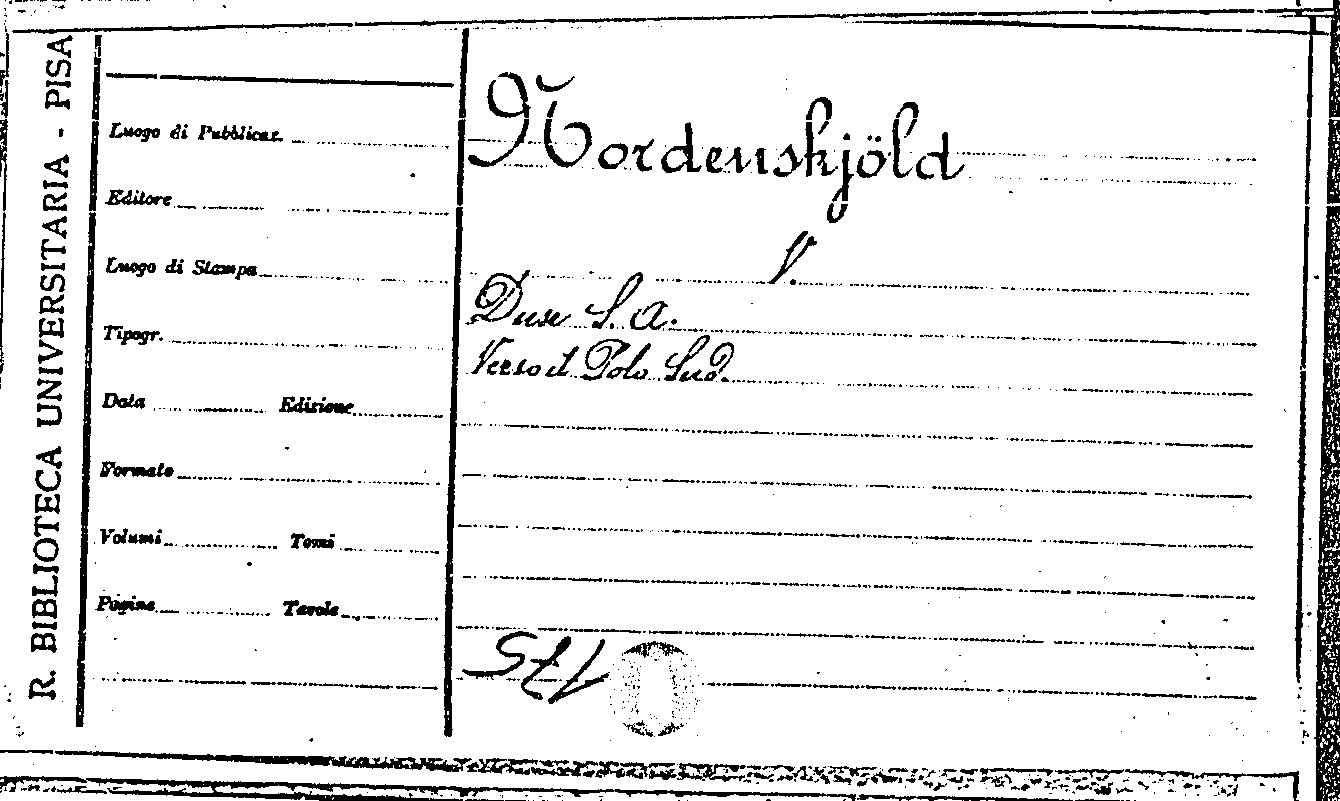 R. BIBLIOTECA UNIVERSITARIA - PISA
Luogo di Pubblicaz.
Editore
Luogo di Stampa
Tipogr.
Data Edizione
Formato
Volumi Tomi
Pagine Tavole
Nordenskjöld
V.
Duse S. A.
Verso il Polo Sud.
175